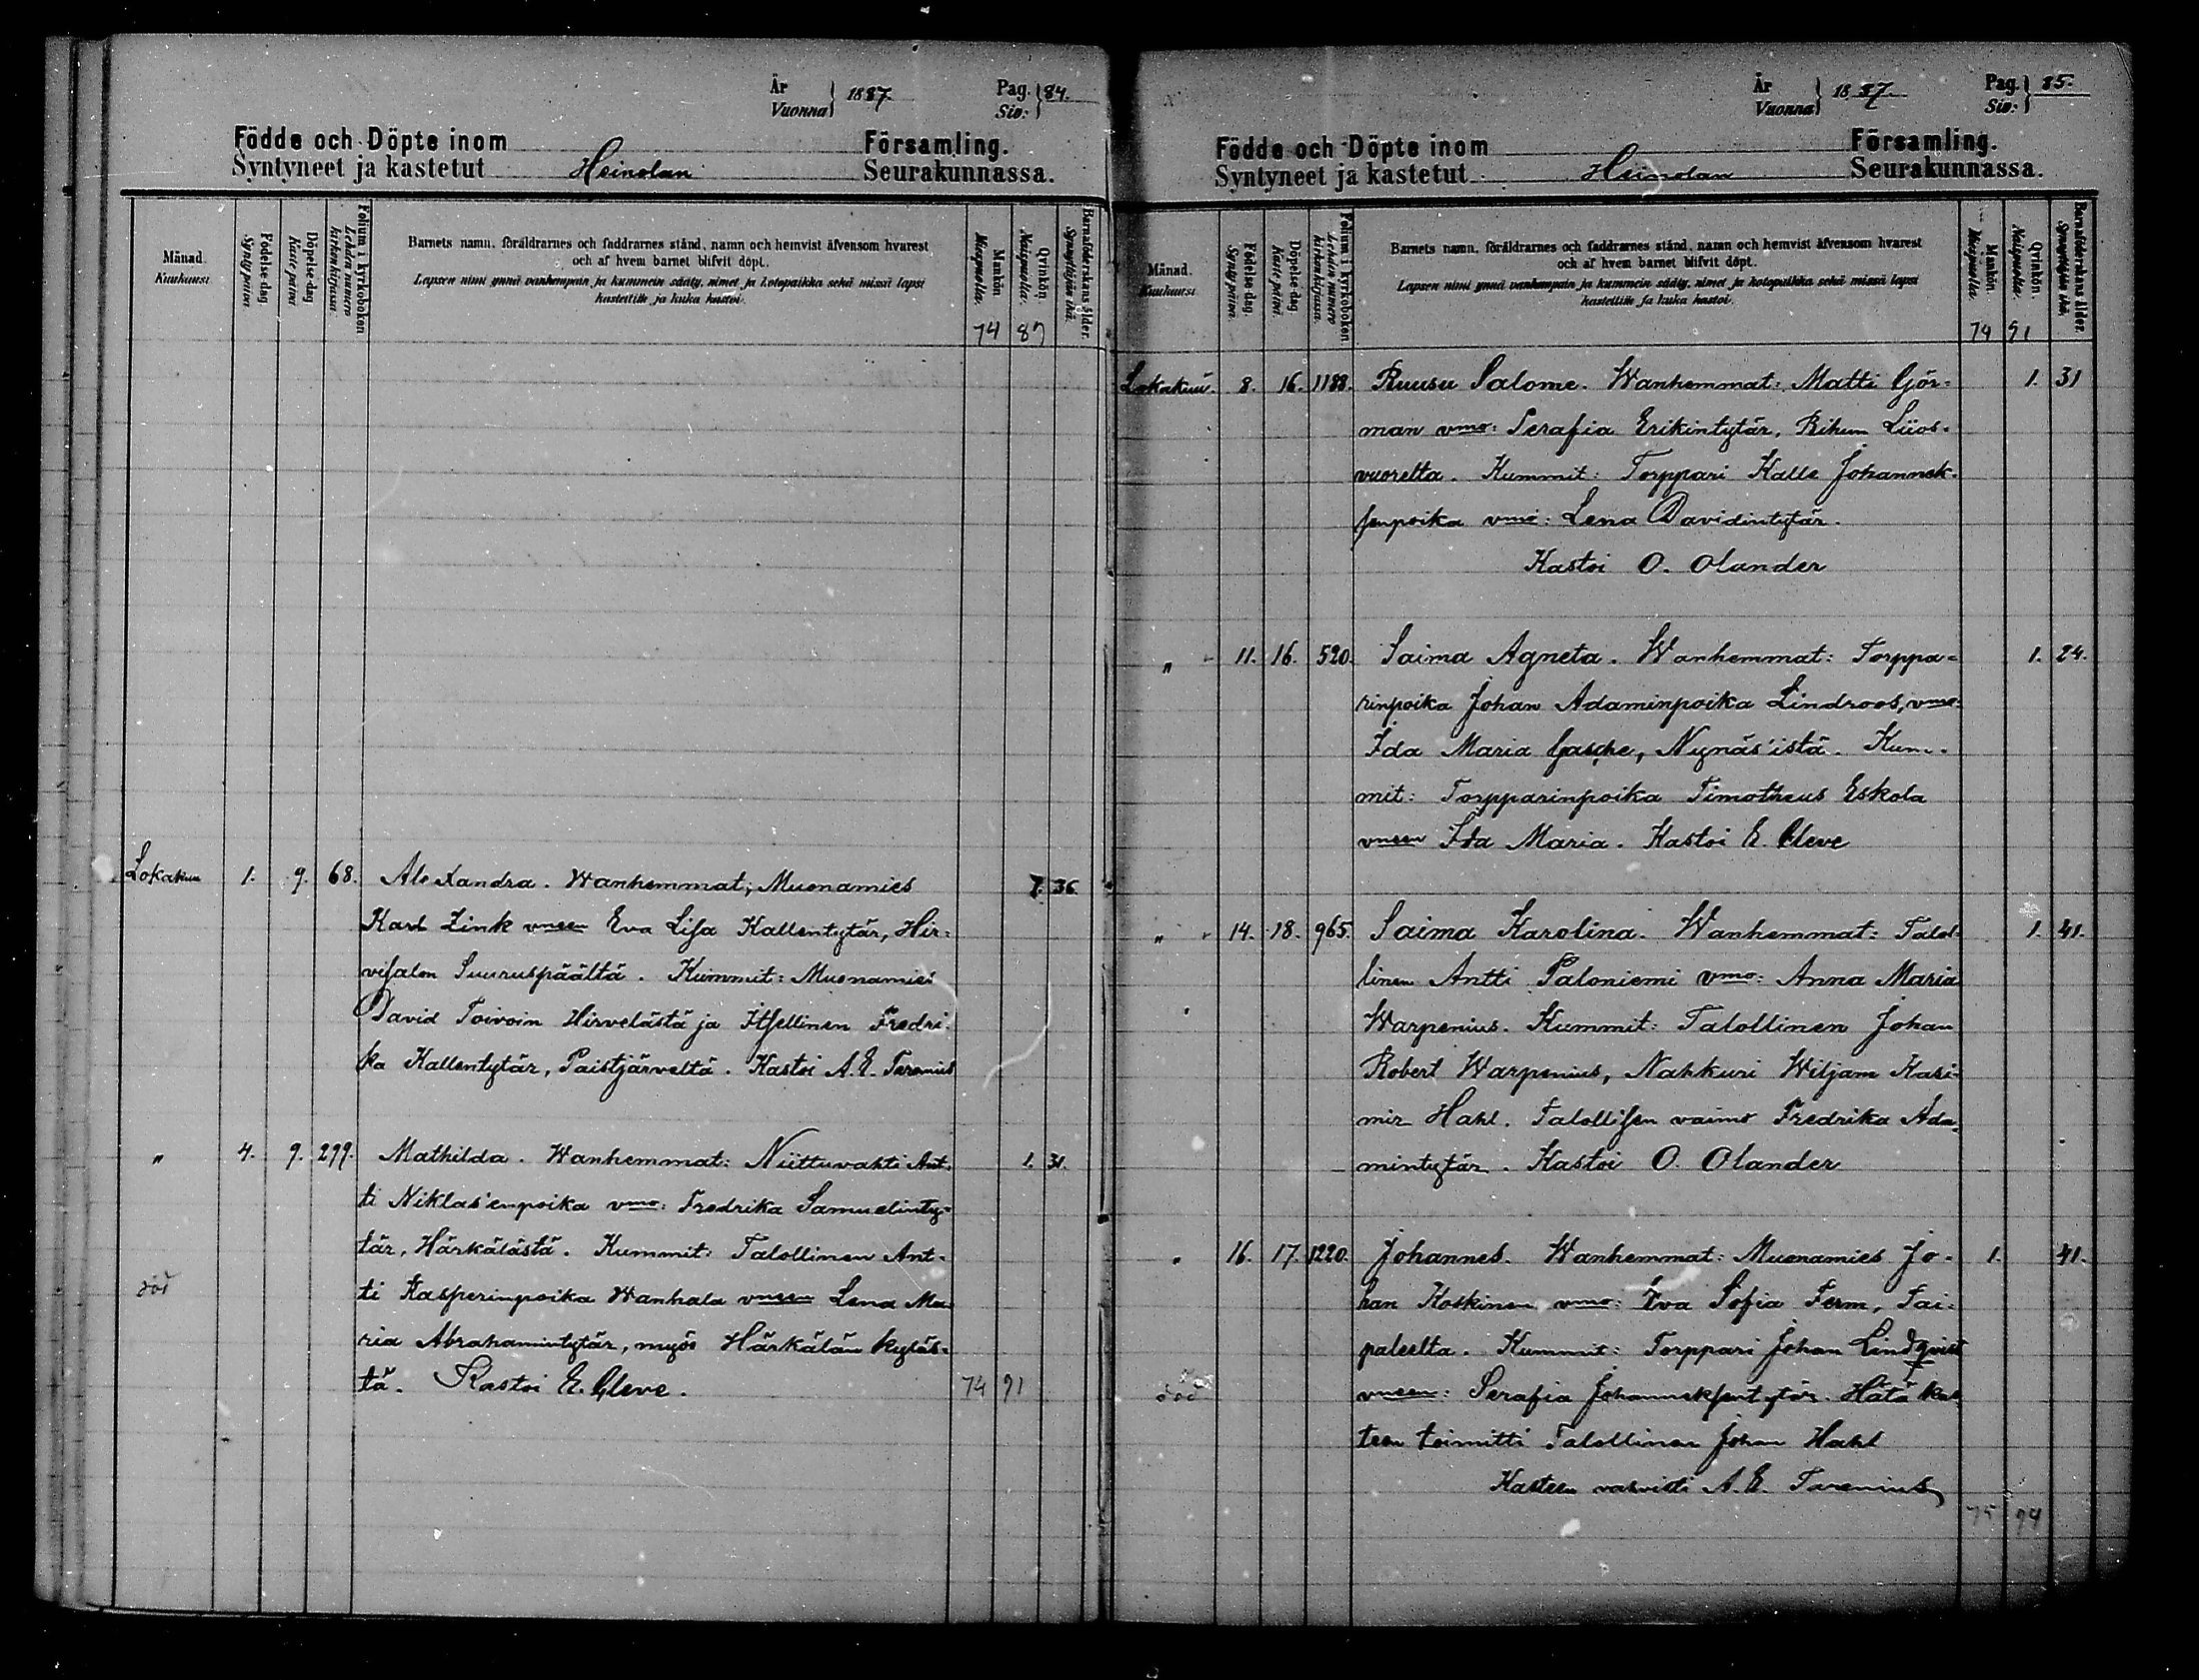 År
Vuonna } 1887.
Pag.
Siv: } 84.
Födde och Döpte inom Församling.
Syntyneet ja kastetut Heinolan Seurakunnassa.
Månad.
Kuukausi.
Födelse-dag.
Syntypäivä.
Döpelse-dag
Kastepäivä
Folium i kyrkoboken
Lehden numero kirkonkirjassa.
Barnets namn, föräldrarnes och faddrarnes stånd, namn och hemvist äfvensom hvarest
och af hvem barnet blifvit döpt.
Lapsen nimi ynnä vanhempain ja kummein sääty, nimet ja kotopaikka sekä missä lapsi
kastettiin ja kuka kastoi.
Mankön.
Miespuolia.
Qvinkön.
Naispuolia.
Barnaföderskans ålder.
Synnyttäjän ikä.
74 87
Lokakuu 1. 9. 68. Alexandra. Wanhemmat; Muonamies 1. 36
Karl Zink vneen Eva Lisa Kallentytär, Hir-
visalon Suuruspäältä. Kummit: Muonamies
David Toivoin Hirvelästä ja Itsellinen Fredri-
ka Kallentytär, Paistjärveltä. Kastoi A. E. Tarenius
" 4. 9. 299. Mathilda. Wanhemmat: Niittuvahti Ant- 1. 31.
ti Niklas'enpoika vmo: Fredrika Samuelinty-
tär, Härkälästä. Kummit: Talollinen Ant-
död ti Kasperinpoika Wanhala vneen Lena Ma-
ria Abrahamintytär, myös Härkälän kyläs-
tä. Kastoi E. Cleve. 74 91
År
Vuonna } 1887.
Pag.
Siv: } 85.
Födde och Döpte inom Församling.
Syntyneet ja kastetut Heinolan Seurakunnassa.
Månad.
Kuukausi.
Födelse-dag.
Syntypäivä.
Döpelse-dag
Kastepäivä.
Folium i kyrkoboken.
Lehden numero kirkonkirjassa.
Barnets namn, föräldrarnes och faddrarnes stånd, namn och hemvist äfvensom hvarest
och af hvem barnet blifvit döpt.
Lapsen nimi ynnä vanhempain ja kummein sääty, nimet ja kotopaikka sekä missä lapsi
kastettiin ja kuka kastoi.
Mankön.
Miespuolia.
Qvinkön.
Naispuolia.
Barnaföderskans ålder.
Synnyttäjän ikä.
74 91
Lokakuu. 8. 16. 1188. Ruusu Salome. Wanhemmat: Matti Gör- 1. 31
man vmo: Serafia Erikintytär, Rihun Liios-
vuorelta. Kummit: Torppari Kalle Johannek-
senpoika vmo: Lena Davidintytär.
Kastoi O. Olander
" 11. 16. 520. Saima Agneta. Wanhemmat: Torppa- 1. 24.
rinpoika Johan Adaminpoika Lindroos, vmo:
Ida Maria Gasche, Nynäs'istä. Kum-
mit: Torpparinpoika Timotheus Eskola
vneen Ida Maria. Kastoi E. Cleve
" 14. 18. 965. Saima Karolina. Wanhemmat: Talol- 1. 41.
linen Antti Paloniemi vmo: Anna Maria
Warpenius. Kummit: Talollinen Johan
Robert Warpenius, Nahkuri Wiljam Kasi-
mir Hahl. Talollisen vaimo Fredrika Ada-
mintytär. Kastoi O. Olander
" 16. 17. 1220. Johannes. Wanhemmat: Muonamies Jo- 1. 41.
han Koskinen vmo: Eva Sofia Ferm, Tai-
paleelta. Kummit: Torppari Johan Lindqvist
död vneen: Serafia Johanneksentytär. Hätä kas-
teen toimitti Talollinen Johan Hahl
Kasteen vahvisti A. E. Tarenius
75 94